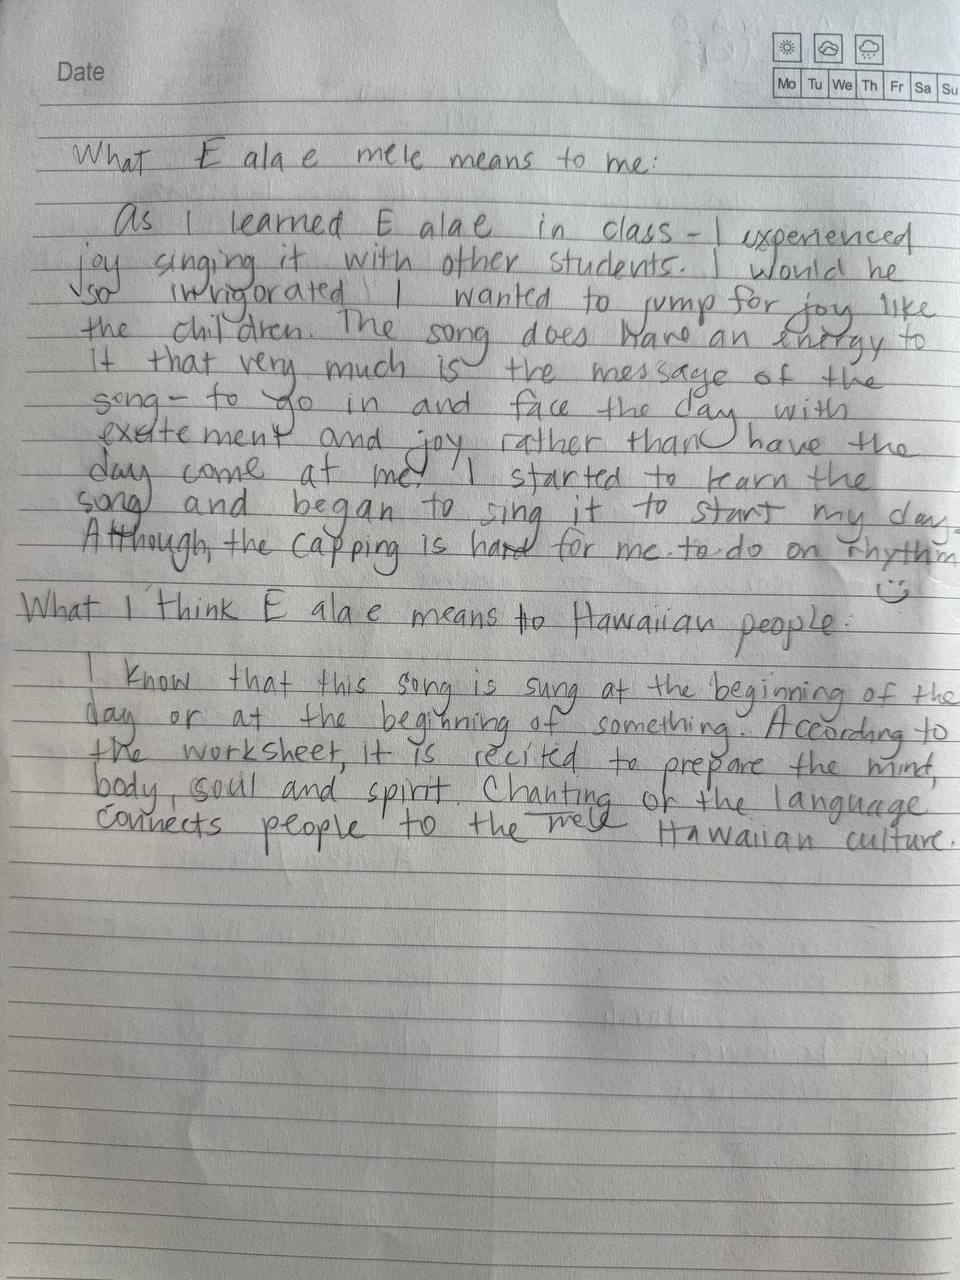 Date
Mo Tu We Th Fr Sa Su
What E ala e mele means to me:
As I learned E ala e in class - I experienced
joy singing it with other students. I would be
so invigorated I wanted to jump for joy like
the children. The song does have an energy to
it that very much is the message of the
song - to go in and face the day with
excitement and joy rather than have the
day come at me! I started to learn the
song and began to sing it to start my day.
Although, the capping is hard for me to do on rhythm
What I think E ala e means to Hawaiian people:
I know that this song is sung at the beginning of the
day or at the beginning of something. According to
the worksheet, it is recited to prepare the mind,
body, soul and spirit. Chanting or the language
connects people to the Hawaiian culture.